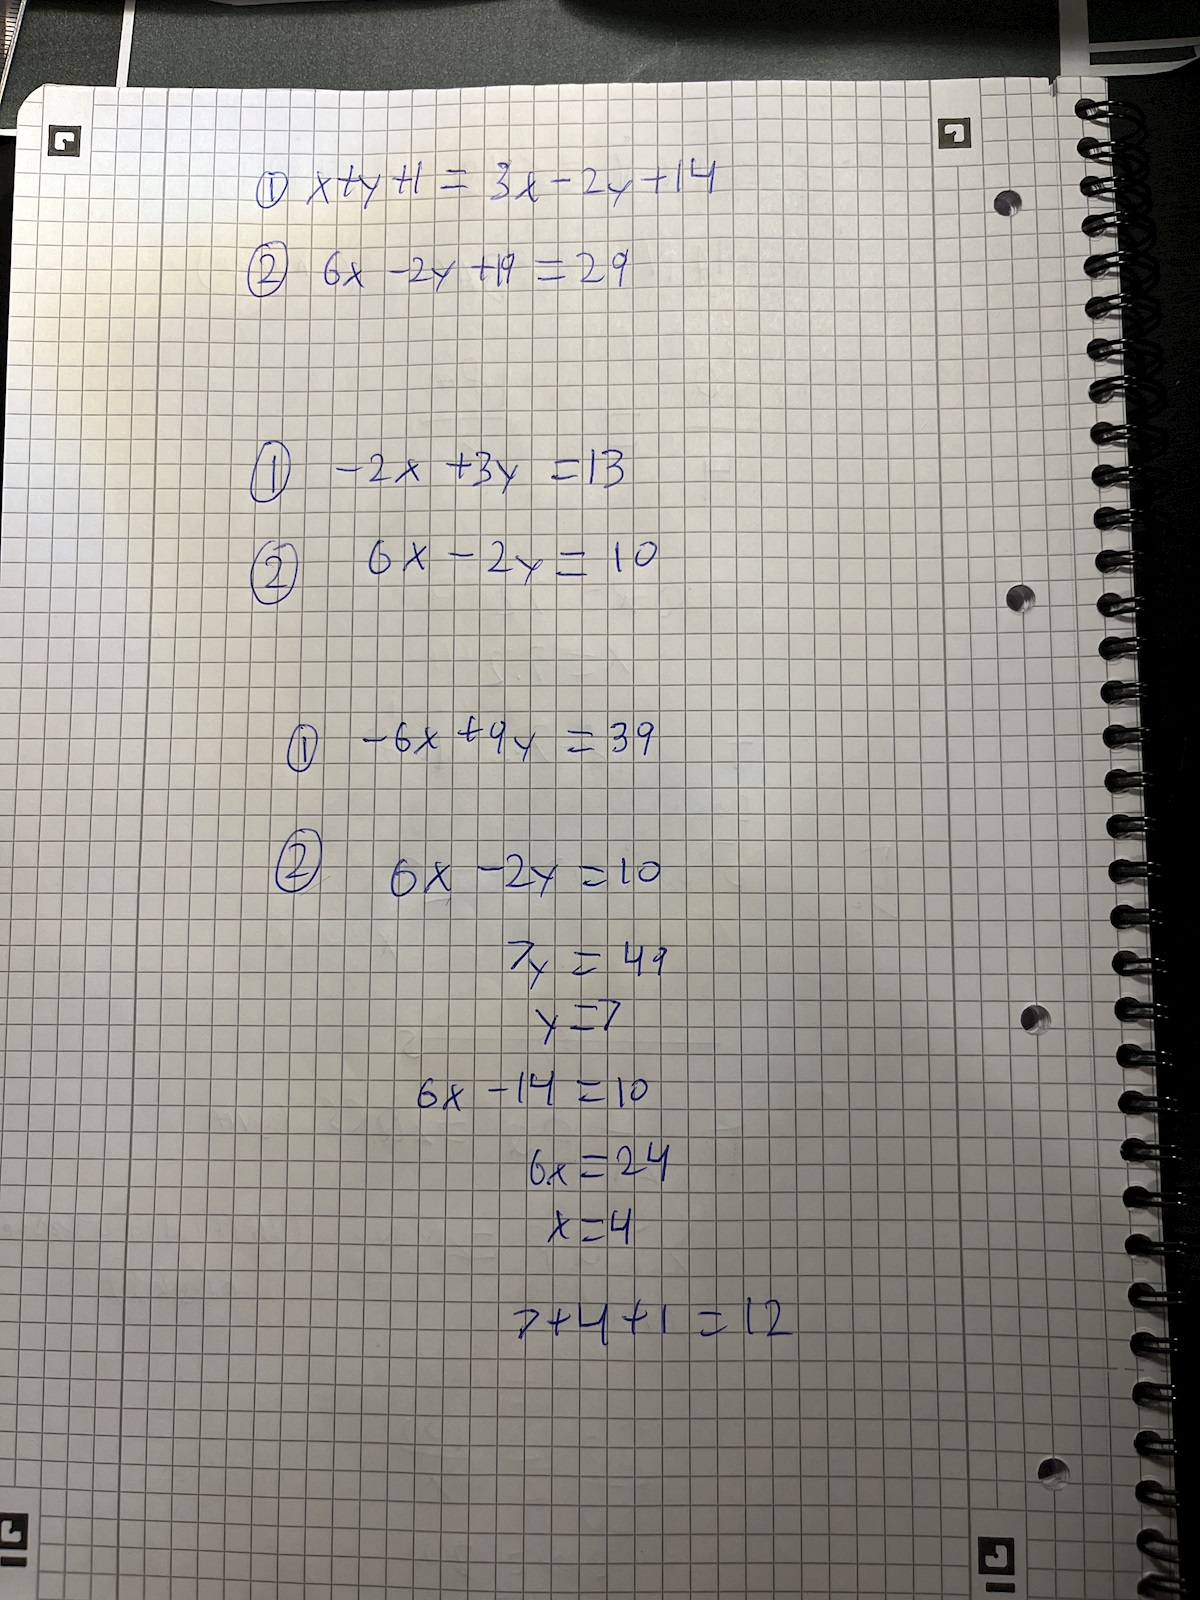 ① x+y+1 = 3x-2y+14
② 6x -2y +19 = 29
① -2x +3y = 13
② 6x - 2y = 10
① -6x +9y = 39
② 6x -2y = 10
7y = 49
y = 7
6x -14 = 10
6x = 24
x = 4
7+4+1 = 12